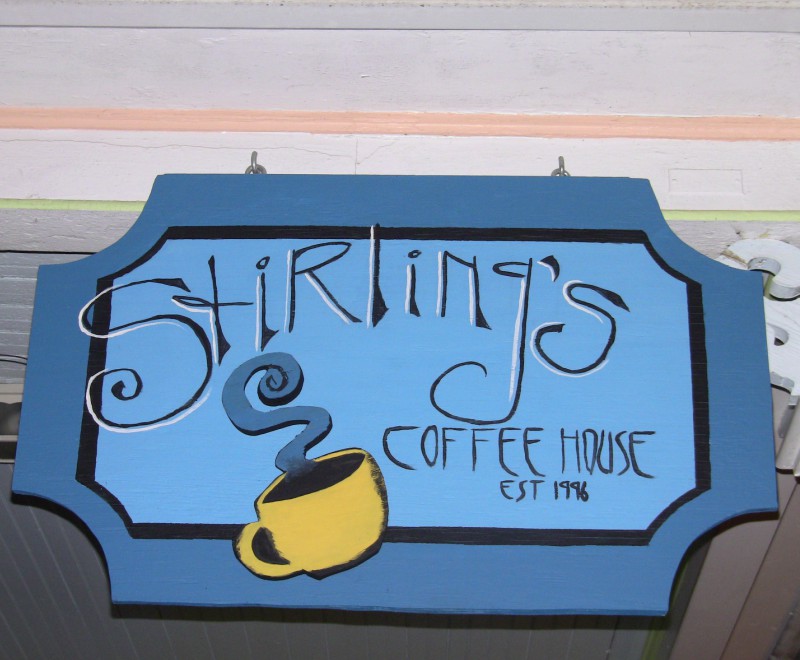 Stirling's
COFFEE HOUSE
EST 1996